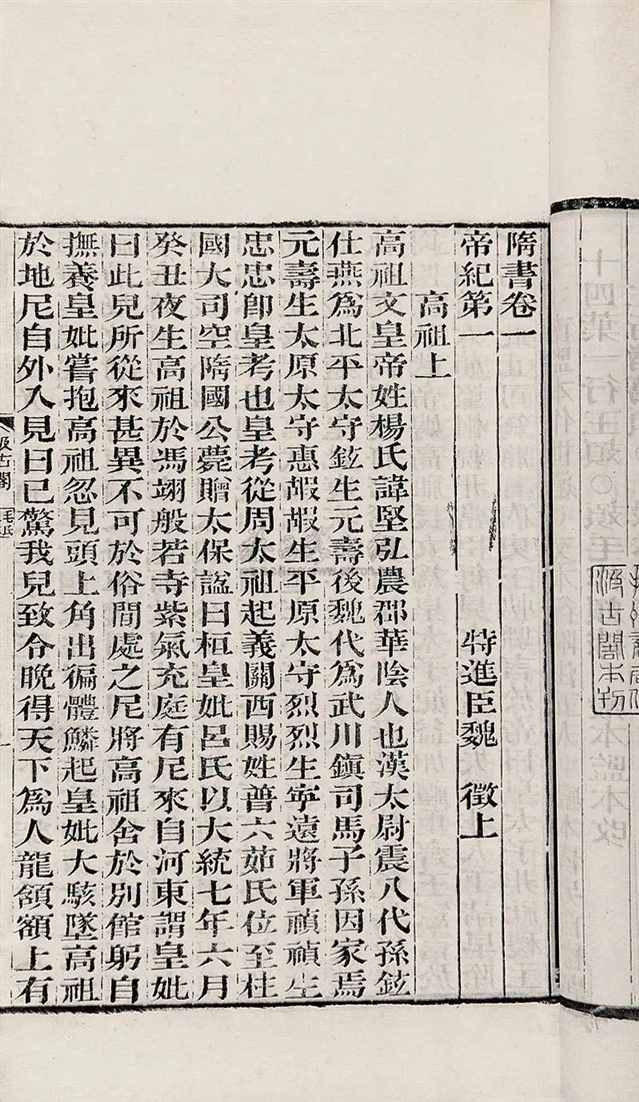 隋書卷一
帝紀第一　特進臣魏　徵上
高祖上
高祖文皇帝姓楊氏諱堅弘農郡華陰人也漢太尉震八代孫鉉
仕燕爲北平太守鉉生元壽後魏代爲武川鎮司馬子孫因家焉
元壽生太原太守惠嘏嘏生平原太守烈烈生寧遠將軍禎禎生
忠忠卽皇考也皇考從周太祖起義關西賜姓普六茹氏位至柱
國大司空隋國公薨贈太保諡曰桓皇妣呂氏以大統七年六月
癸丑夜生高祖於馮翊般若寺紫氣充庭有尼來自河東謂皇妣
曰此兒所從來甚異不可於俗間處之尼將高祖舍於別館躬自
撫養皇妣嘗抱高祖忽見頭上角出徧體鱗起皇妣大駭墜高祖
於地尼自外入見曰已驚我兒致令晚得天下爲人龍頷額上有
汲古閣
毛氏
汲古閣本刊